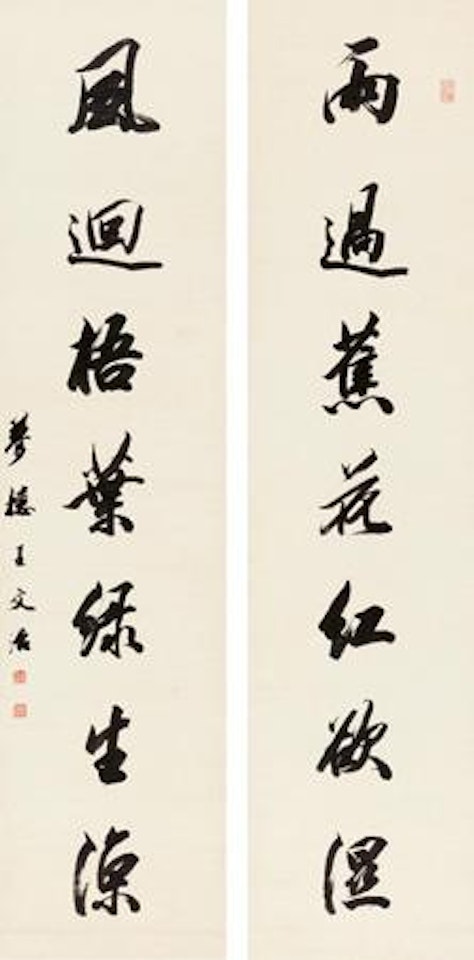 雨過蕉花紅欲濕
風迴梧葉緑生涼
夢樓王文治